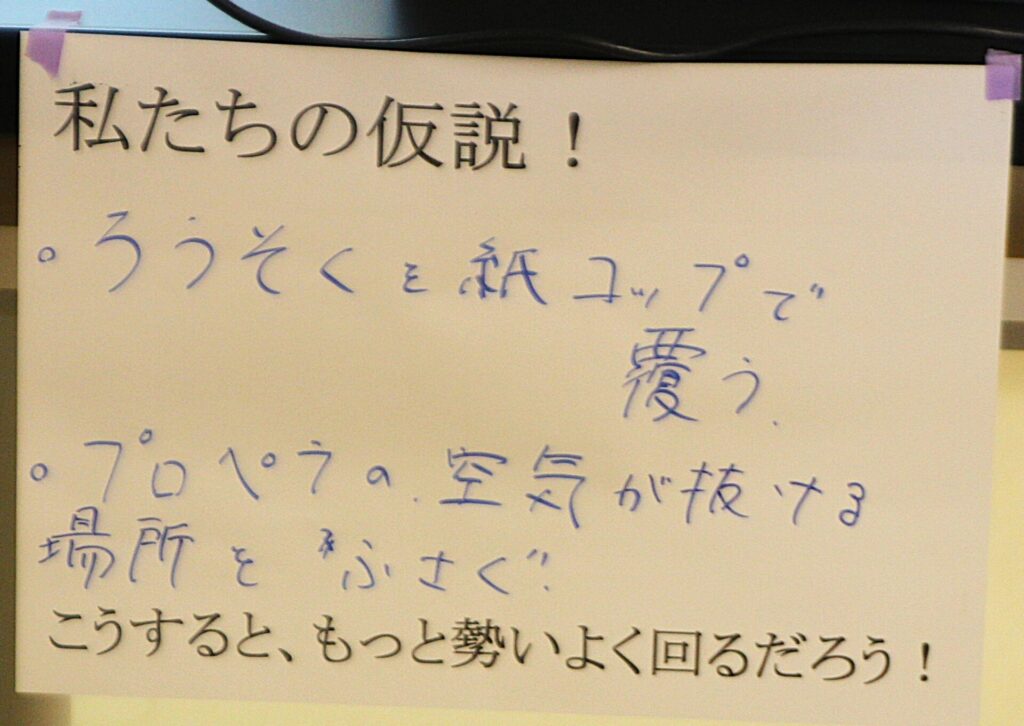 私たちの仮説！
。ろうそくを紙コップで
覆う.
。プロペラの.空気が抜ける
場所を"ふさぐ".
こうすると、もっと勢いよく回るだろう！